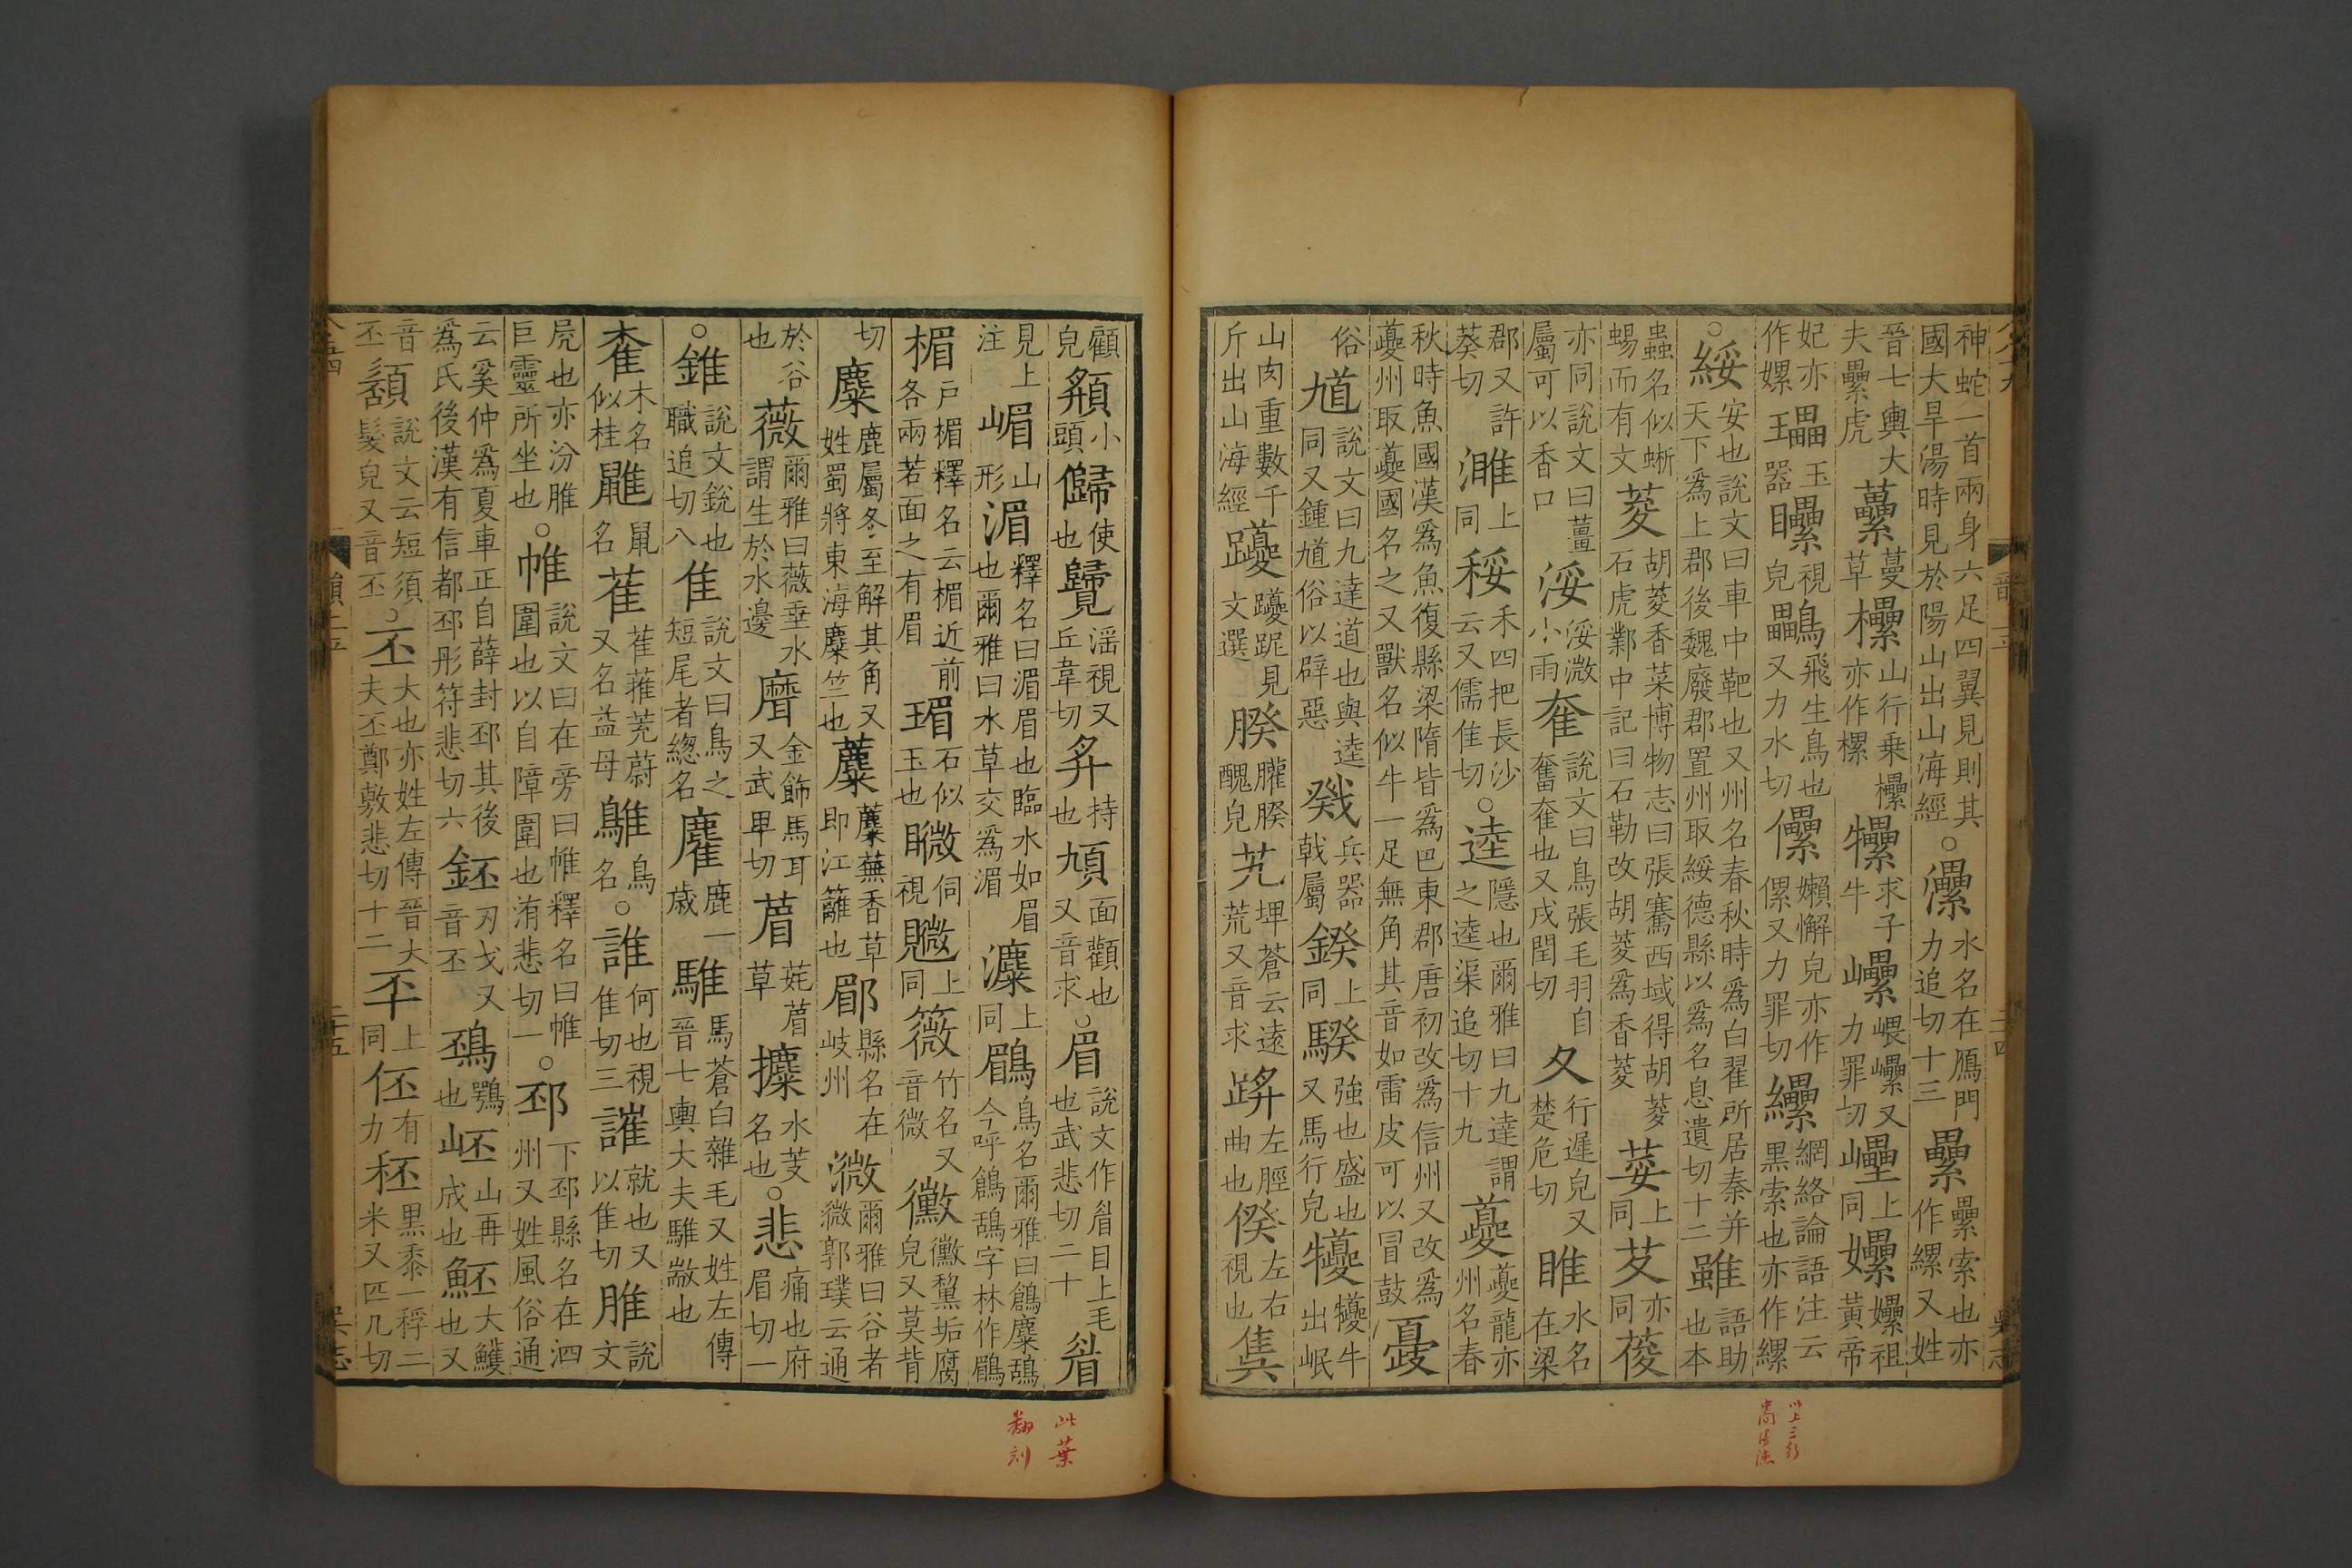 神蛇一首兩身六足四翼見則其國大旱湯時見於陽山出山海經○㶟水名在鴈門力追切十三纍纍索也亦作縲又姓
晉七輿大夫纍虎虆蔓草欙山行乗欙亦作樏㹎求子牛嵔又力罪切上同黃帝
妃亦作嫘瓃玉器視皃鸓飛生鳥也又力水切儽嬾懈皃亦作傫又力罪切纝網絡論語注云黒索也亦作縲
○綏安也說文曰車中靶也又州名春秋時爲白翟所居秦并天下爲上郡後魏廢郡置州取綏德縣以爲名息遺切十二雖語助也本
蟲名似蜥蜴而有文荾胡荾香菜博物志曰張騫西域得胡荾石虎鄴中記曰石勒改胡荾爲香荾荽上同芕亦同葰
亦同說文曰薑屬可以香口浽浽溦小雨奞說文曰鳥張毛羽自奮奞也又戌閏切夊行遲皃又楚危切睢水名在梁
郡又許葵切濉上同桵禾四把長沙云又儒隹切○逵隱也爾雅曰九達謂之逵渠追切十九䕫䕫龍亦州名春
秋時魚國漢爲魚復縣梁隋皆爲巴東郡唐初改爲信州又改爲䕫州取䕫國名之又獸名似牛一足無角其音如雷皮可以冒鼓夔
俗馗說文曰九達道也與逵同又鍾馗俗以辟惡戣兵器戟屬鍨上同騤強也盛也又馬行皃犪犪牛出岷
山肉重數千斤出山海經躨躨跜見文選䑏醜皃艽埤蒼云遠荒又音求左脛曲也左右視也
顧皃頯小頭䢜使也覬淫視又丘韋切弁持也頄面顴也又音求○眉說文作睂目上毛也武悲切二十睂
見上嵋山形湄釋名曰湄眉也臨水如眉也爾雅曰水草交爲湄瀌上同鶥鳥名爾雅曰鶬麋鴰今呼鶬鴰字林作鶥
注楣戶楣釋名云楣近前各兩若面之有眉瑂石似玉也䁋伺視覹上同䉠竹名又音微黴黴黧垢腐皃又莫背
切麋鹿屬冬至解其角又姓蜀將東海麋竺也蘪蘪蕪香草即江蘺也郿縣名在岐州溦爾雅曰谷者溦郭璞云通
於谷也薇爾雅曰薇垂水謂生於水邊金飾馬耳又武卑切葿草水芰名也○悲痛也府眉切一
○錐說文銳也職追切八隹說文曰鳥之短尾者緫名鹿一歲騅馬蒼白雜毛又姓左傳晉七輿大夫騅歂也
木名似桂鼠名萑萑蓷茺蔚又名益母鵻鳥名○誰何也視隹切三就也又以隹切脽說文
尻也亦汾脽巨靈所坐也○帷說文曰在旁曰帷釋名曰帷圍也以自障圍也洧悲切一○邳下邳縣名在泗州又姓風俗通
云奚仲爲夏車正自薛封邳其後爲氏後漢有信都邳彤符悲切六鉟刃戈又音丕鴀鴞也岯山再成也魾大鱯也又
音丕頾說文云短須髮皃又音丕○丕大也亦姓左傳晉大夫丕鄭敷悲切十二㔻上同伾有力秠黒黍一稃二米又匹几切
此葉
翻刻
以上三行